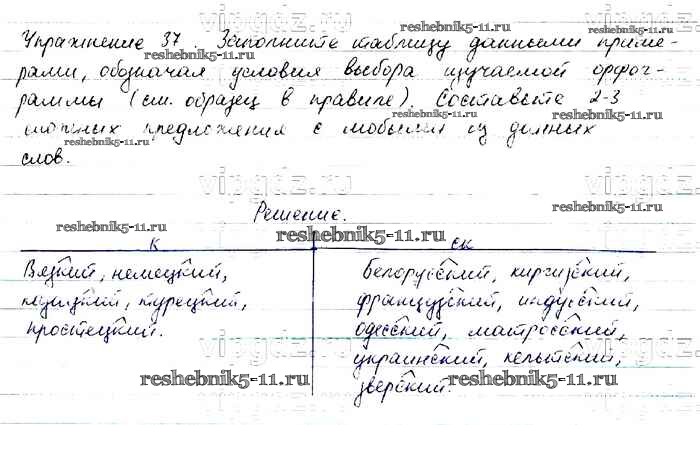 Упражнение 37 Заполните таблицу данными приме-
рами, обозначая условия выбора изучаемой орфог-
раммы (см. образец в правиле). Составьте 2-3
сложных предложения с любыми из данных
слов.
Решение.
к
ск
Вязкий, немецкий,
турецкий,
простецкий.
Белорусский, киргизский,
французский, индусский,
одесский, матросский,
украинский, кельтский,
зверский.
reshebnik5-11.ru
reshebnik5-11.ru
reshebnik5-11.ru
reshebnik5-11.ru
reshebnik5-11.ru
reshebnik5-11.ru
reshebnik5-11.ru
reshebnik5-11.ru
vipgdz.ru
vipgdz.ru
vipgdz.ru
vipgdz.ru